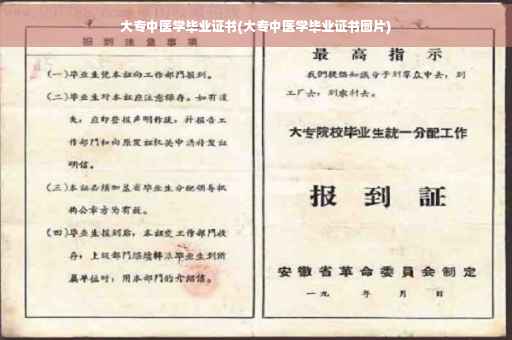 大专中医学毕业证书(大专中医学毕业证书图片)
报到注意事项
(一)毕业生凭本证向工作部门报到。
(二)毕业生对本证应注意保存。如有遗
失，应即登报声明作废，并报告工
作部门和向原发证机关申请补发证
明信。
(三)本证必须加盖省毕业生分配领导机
构公章方为有效。
(四)毕业生报到后，本证交工作部门收
存，上级部门继续转派毕业生到所
属单位时，用本部门的介绍信。
最高指示
我们提倡知识分子到群众中去，到
工厂去，到农村去。
大专院校毕业生統一分配工作
报到証
安徽省革命委員会制定
一九 年 月 日